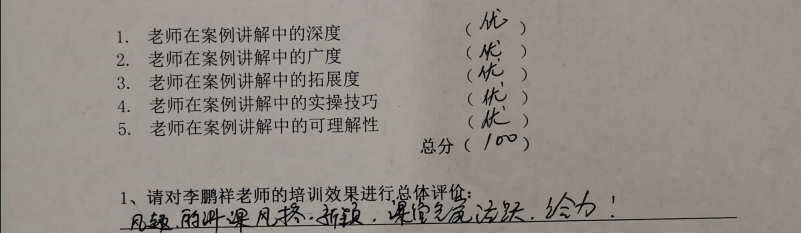 1. 老师在案例讲解中的深度 （优）
2. 老师在案例讲解中的广度 （优）
3. 老师在案例讲解中的拓展度 （优）
4. 老师在案例讲解中的实操技巧 （优）
5. 老师在案例讲解中的可理解性 （优）
总分（100）
1、请对李鹏祥老师的培训效果进行总体评价：
风趣的讲课风格.新颖.课堂氛围活跃.给力！